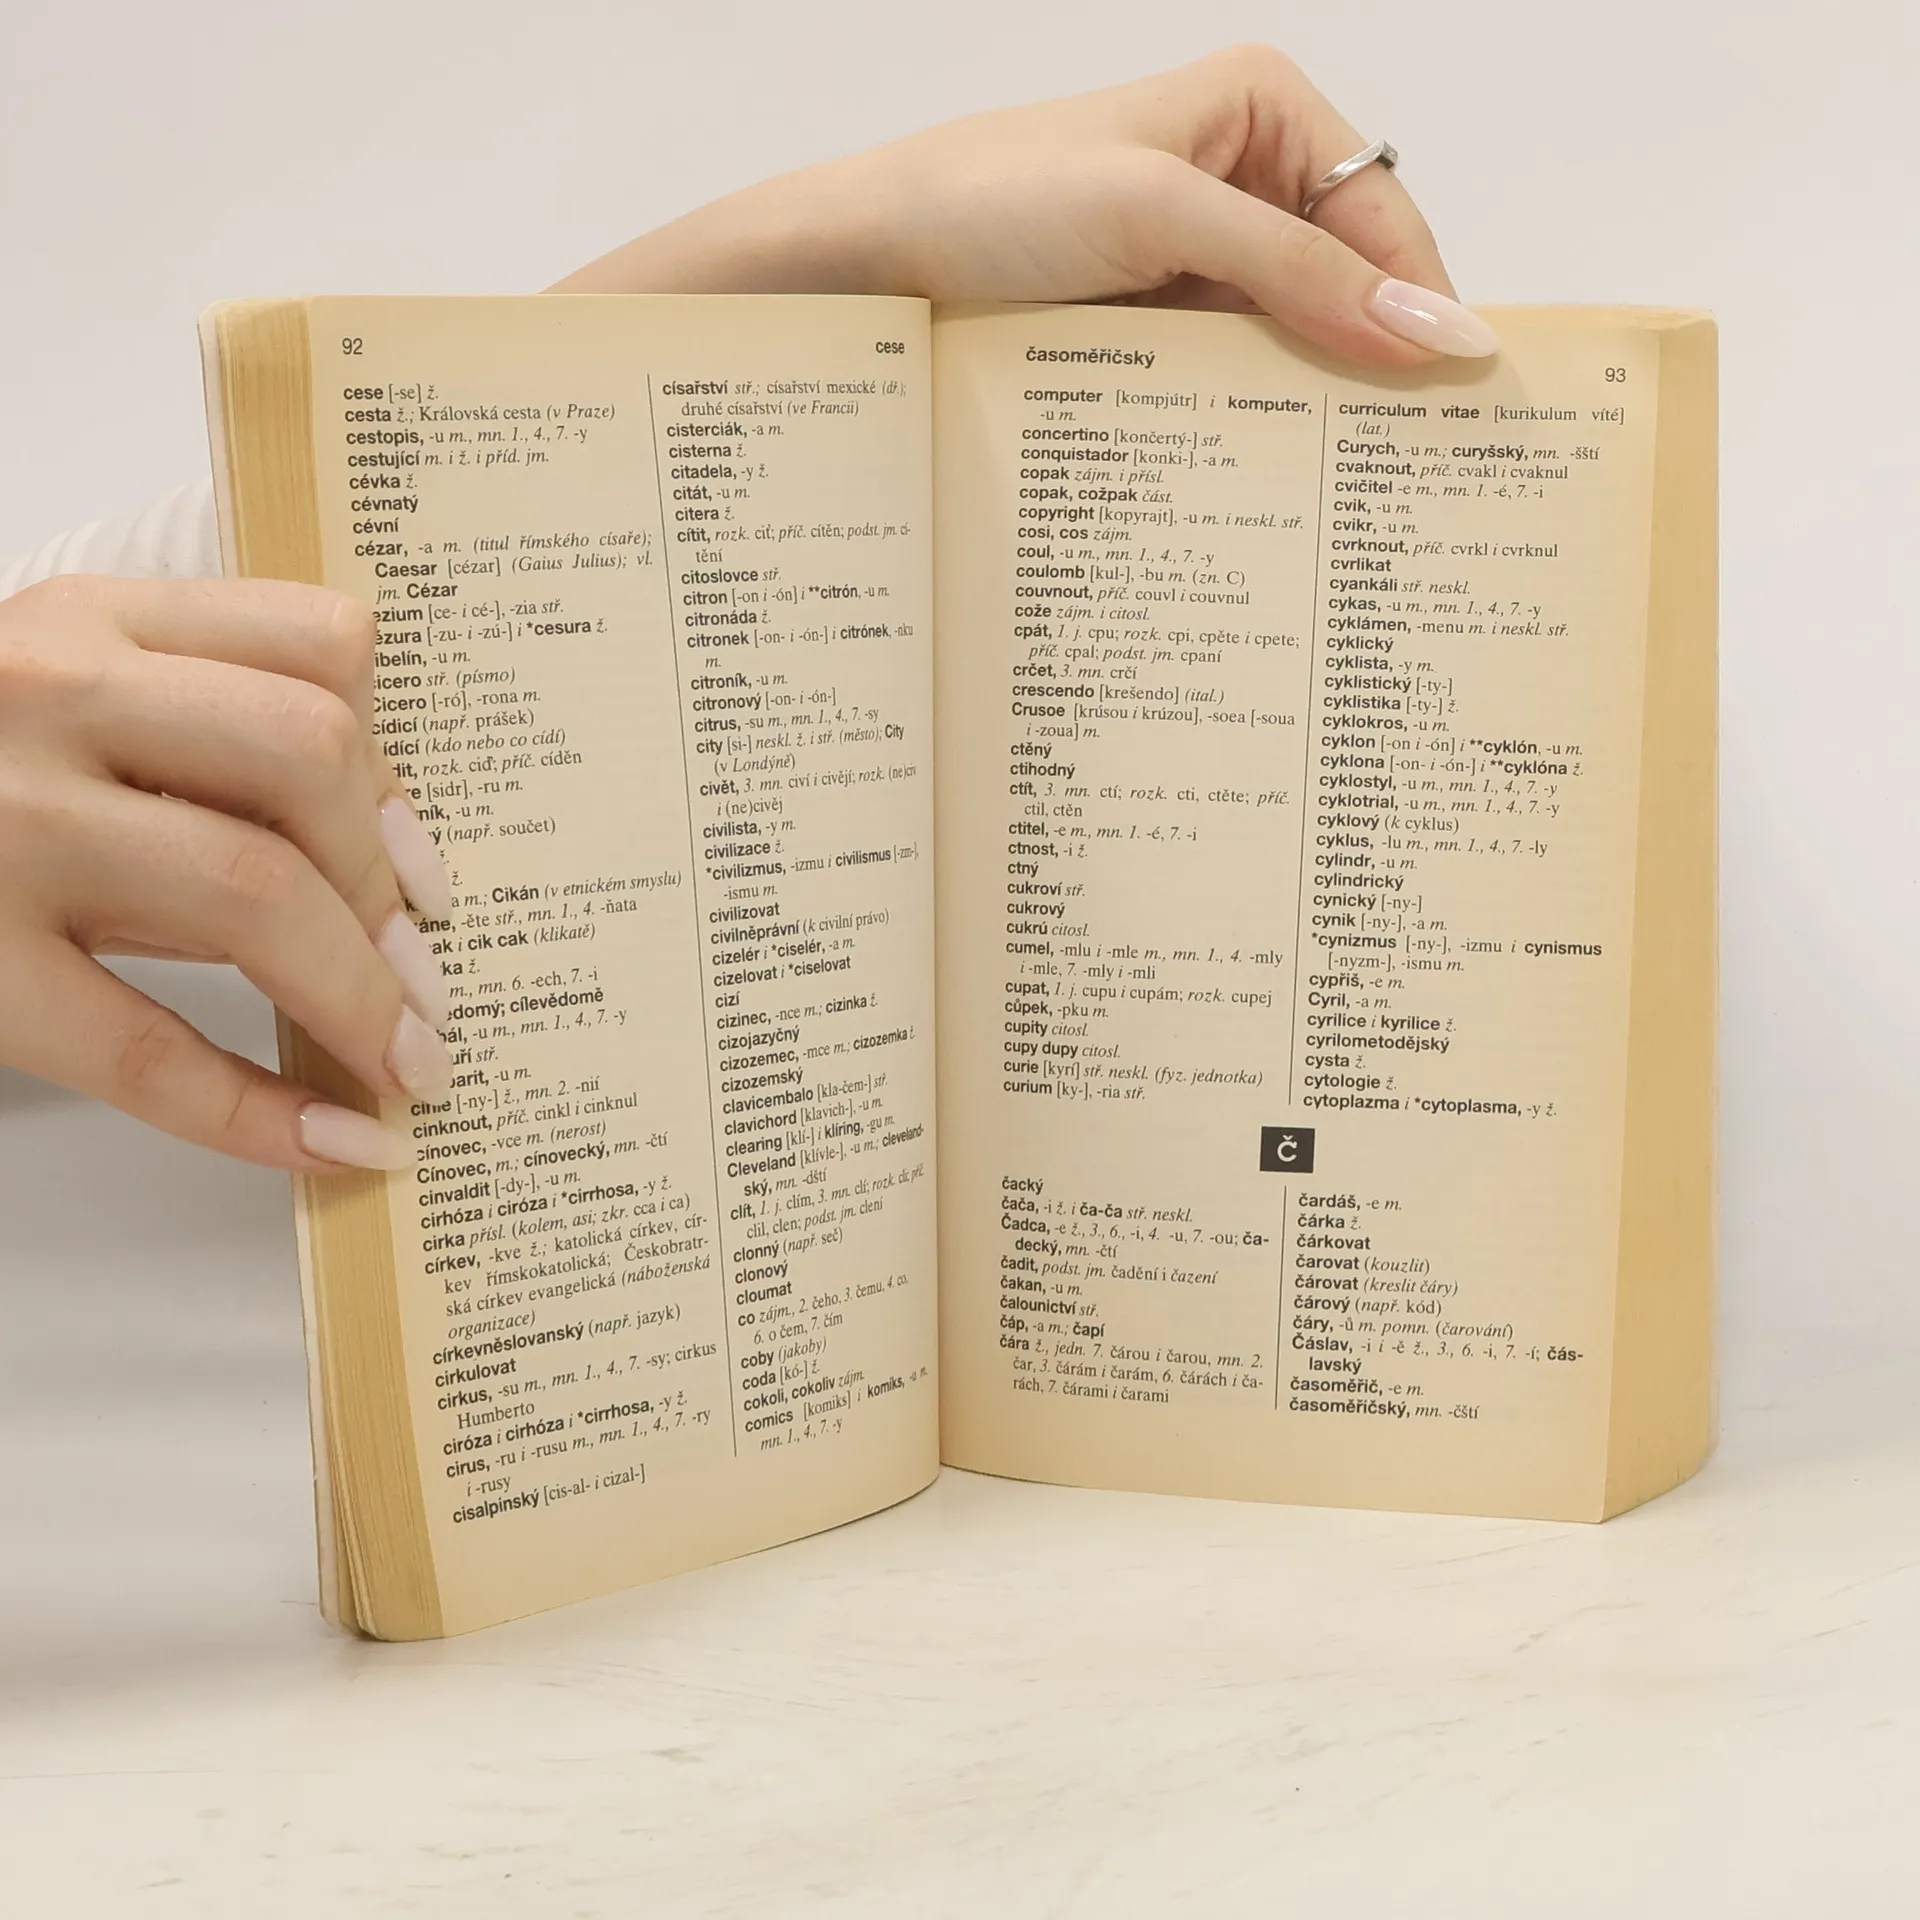 92
cese
cese [-se] ž.
cesta ž.; Královská cesta (v Praze)
cestopis, -u m., mn. 1., 4., 7. -y
cestující m. i ž. i příd. jm.
cévka ž.
cévnatý
cévní
cézar, -a m. (titul římského císaře);
Caesar [cézar] (Gaius Julius); vl.
jm. Cézar
[ce- i cé-], -zia stř.
[-zu- i -zú-] i *cesura ž.
-u m.
stř. (písmo)
Cicero [-ró], -rona m.
cídicí (např. prášek)
(kdo nebo co cídí)
rozk. ciď; příč. cíděn
[sidr], -ru m.
-u m.
(např. součet)
ž.
ž.
a m.; Cikán (v etnickém smyslu)
-ěte stř., mn. 1., 4. -ňata
i cik cak (klikatě)
ž.
m., mn. 6. -ech, 7. -i
cílevědomě
-u m., mn. 1., 4., 7. -y
stř.
-u m.
[-ny-] ž., mn. 2. -nií
cinknout, příč. cinkl i cinknul
cínovec, -vce m. (nerost)
Cínovec, m.; cínovecký, mn. -čtí
cinvaldit [-dy-], -u m.
cirhóza i ciróza i *cirrhosa, -y ž.
cirka přísl. (kolem, asi; zkr. cca i ca)
církev, -kve ž.; katolická církev, cír-
kev římskokatolická; Českobratr-
ská církev evangelická (náboženská
organizace)
církevněslovanský (např. jazyk)
cirkulovat
cirkus, -su m., mn. 1., 4., 7. -sy; cirkus
Humberto
ciróza i cirhóza i *cirrhosa, -y ž.
cirus, -ru i -rusu m., mn. 1., 4., 7. -ry
i -rusy
cisalpinský [cis-al- i cizal-]
císařství stř.; císařství mexické (dř.);
druhé císařství (ve Francii)
cisterciák, -a m.
cisterna ž.
citadela, -y ž.
citát, -u m.
citera ž.
cítit, rozk. ciť; příč. cítěn; podst. jm. cí-
tění
citoslovce stř.
citron [-on i -ón] i **citrón, -u m.
citronáda ž.
citronek [-on- i -ón-] i citrónek, -nku
m.
citroník, -u m.
citronový [-on- i -ón-]
citrus, -su m., mn. 1., 4., 7. -sy
city [si-] neskl. ž. i stř. (město); City
(v Londýně)
civět, 3. mn. civí i civějí; rozk. (ne)civ
i (ne)civěj
civilista, -y m.
civilizace ž.
*civilizmus, -izmu i civilismus [-zm-],
-ismu m.
civilizovat
civilněprávní (k civilní právo)
cizelér i *ciselér, -a m.
cizelovat i *ciselovat
cizí
cizinec, -nce m.; cizinka ž.
cizojazyčný
cizozemec, -mce m.; cizozemka ž.
cizozemský
clavicembalo [kla-čem-] stř.
clavichord [klavich-], -u m.
clearing [klí-] i klíring, -gu m.
Cleveland [klívle-], -u m.; cleveland-
ský, mn. -dští
clít, 1. j. clím, 3. mn. clí; rozk. cli; příč.
clil, clen; podst. jm. clení
clonný (např. seč)
clonový
cloumat
co zájm., 2. čeho, 3. čemu, 4. co,
6. o čem, 7. čím
coby (jakoby)
coda [kó-] ž.
cokoli, cokoliv zájm.
comics [komiks] i komiks, -u m.
mn. 1., 4., 7. -y
časoměřičský
93
computer [kompjútr] i komputer,
-u m.
concertino [končertý-] stř.
conquistador [konki-], -a m.
copak zájm. i přísl.
copak, cožpak část.
copyright [kopyrajt], -u m. i neskl. stř.
cosi, cos zájm.
coul, -u m., mn. 1., 4., 7. -y
coulomb [kul-], -bu m. (zn. C)
couvnout, příč. couvl i couvnul
cože zájm. i citosl.
cpát, 1. j. cpu; rozk. cpi, cpěte i cpete;
příč. cpal; podst. jm. cpaní
crčet, 3. mn. crčí
crescendo [krešendo] (ital.)
Crusoe [krúsou i krúzou], -soea [-soua
i -zoua] m.
ctěný
ctihodný
ctít, 3. mn. ctí; rozk. cti, ctěte; příč.
ctil, ctěn
ctitel, -e m., mn. 1. -é, 7. -i
ctnost, -i ž.
ctný
cukroví stř.
cukrový
cukrú citosl.
cumel, -mlu i -mle m., mn. 1., 4. -mly
i -mle, 7. -mly i -mli
cupat, 1. j. cupu i cupám; rozk. cupej
cůpek, -pku m.
cupity citosl.
cupy dupy citosl.
curie [kyrí] stř. neskl. (fyz. jednotka)
curium [ky-], -ria stř.
curriculum vitae [kurikulum víté]
(lat.)
Curych, -u m.; curyšský, mn. -šští
cvaknout, příč. cvakl i cvaknul
cvičitel -e m., mn. 1. -é, 7. -i
cvik, -u m.
cvikr, -u m.
cvrknout, příč. cvrkl i cvrknul
cvrlikat
cyankáli stř. neskl.
cykas, -u m., mn. 1., 4., 7. -y
cyklámen, -menu m. i neskl. stř.
cyklický
cyklista, -y m.
cyklistický [-ty-]
cyklistika [-ty-] ž.
cyklokros, -u m.
cyklon [-on i -ón] i **cyklón, -u m.
cyklona [-on- i -ón-] i **cyklóna ž.
cyklostyl, -u m., mn. 1., 4., 7. -y
cyklotrial, -u m., mn. 1., 4., 7. -y
cyklový (k cyklus)
cyklus, -lu m., mn. 1., 4., 7. -ly
cylindr, -u m.
cylindrický
cynický [-ny-]
cynik [-ny-], -a m.
*cynizmus [-ny-], -izmu i cynismus
[-nyzm-], -ismu m.
cypřiš, -e m.
Cyril, -a m.
cyrilice i kyrilice ž.
cyrilometodějský
cysta ž.
cytologie ž.
cytoplazma i *cytoplasma, -y ž.
Č
čacký
čača, -i ž. i ča-ča stř. neskl.
Čadca, -e ž., 3., 6., -i, 4. -u, 7. -ou; ča-
decký, mn. -čtí
čadit, podst. jm. čadění i čazení
čakan, -u m.
čalounictví stř.
čáp, -a m.; čapí
čára ž., jedn. 7. čárou i čarou, mn. 2.
čar, 3. čárám i čarám, 6. čárách i ča-
rách, 7. čárami i čarami
čardáš, -e m.
čárka ž.
čárkovat
čarovat (kouzlit)
čárovat (kreslit čáry)
čárový (např. kód)
čáry, -ů m. pomn. (čarování)
Čáslav, -i i -ě ž., 3., 6. -i, 7. -í; čás-
lavský
časoměřič, -e m.
časoměřičský, mn. -čští